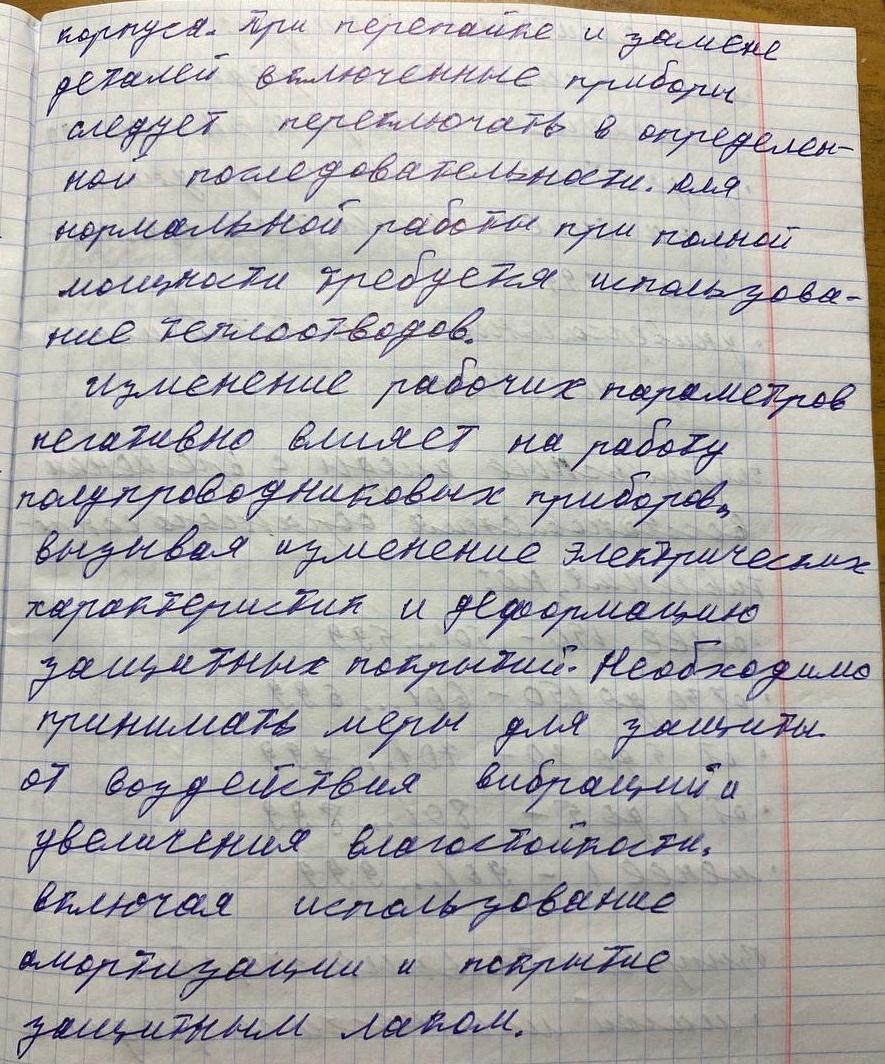 корпуса. При перепайке и замене
деталей включенные приборы
следует переключать в определен-
ной последовательности. Для
нормальной работы при полной
мощности требуется использова-
ние теплоотводов.
Изменение рабочих параметров
негативно влияет на работу
полупроводниковых приборов,
вызывая изменение электрических
характеристик и деформацию
защитных покрытий. Необходимо
принимать меры для защиты
от воздействия вибраций и
увеличения влагостойкости,
включая использование
амортизации и покрытие
защитным лаком.